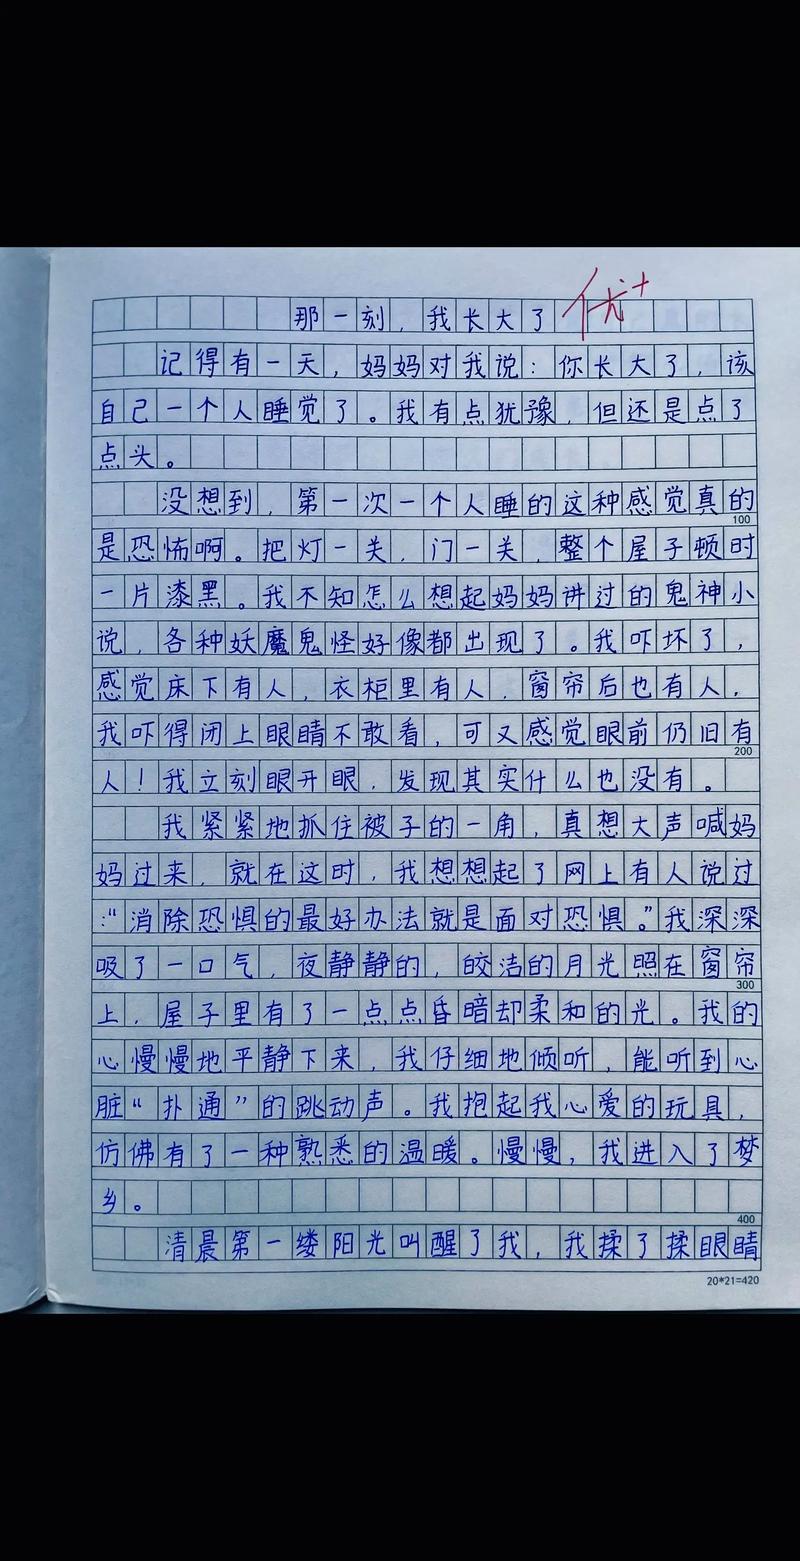 那一刻，我长大了 优+
记得有一天，妈妈对我说：你长大了，该
自己一个人睡觉了。我有点犹豫，但还是点了
点头。
没想到，第一次一个人睡的这种感觉真的
100
是恐怖啊。把灯一关，门一关，整个屋子顿时
一片漆黑。我不知怎么想起妈妈讲过的鬼神小
说，各种妖魔鬼怪好像都出现了。我吓坏了，
感觉床下有人，衣柜里有人，窗帘后也有人，
我吓得闭上眼睛不敢看，可又感觉眼前仍旧有
200
人！我立刻眼开眼，发现其实什么也没有。
我紧紧地抓住被子的一角，真想大声喊妈
妈过来，就在这时，我想想起了网上有人说过
：“消除恐惧的最好办法就是面对恐惧。”我深深
吸了一口气，夜静静的，皎洁的月光照在窗帘
300
上，屋子里有了一点点昏暗却柔和的光。我的
心慢慢地平静下来，我仔细地倾听，能听到心
脏“扑通”的跳动声。我抱起我心爱的玩具，
仿佛有了一种熟悉的温暖。慢慢，我进入了梦
乡。
400
清晨第一缕阳光叫醒了我，我揉了揉眼睛
20*21=420